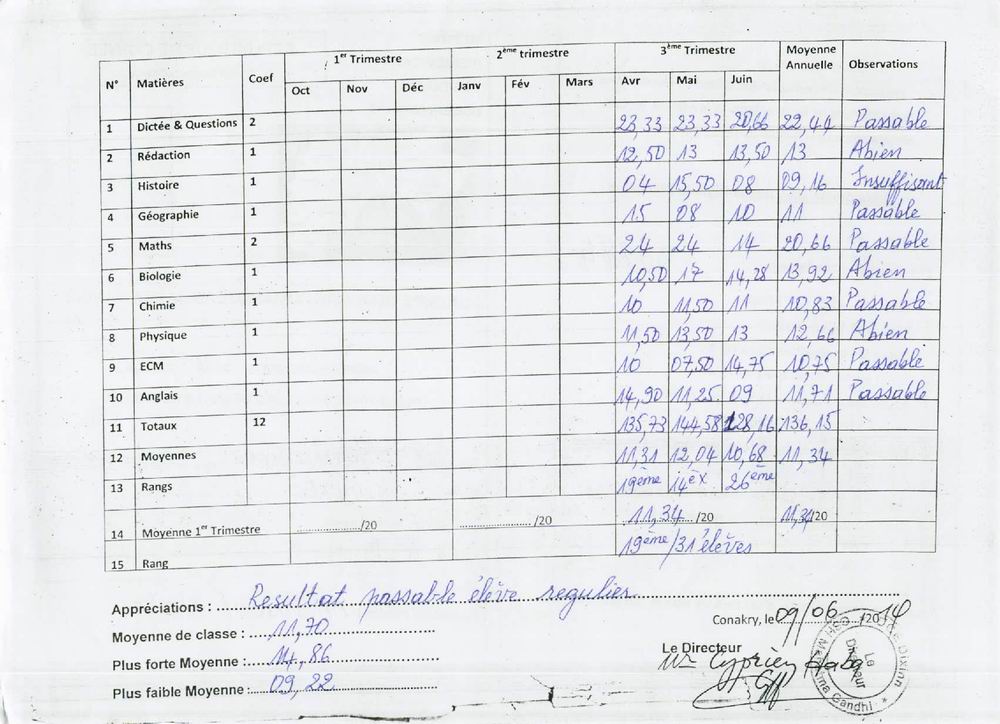 N° Matières Coef 1er Trimestre 2ème trimestre 3ème Trimestre Moyenne Annuelle Observations
Oct Nov Déc Janv Fév Mars Avr Mai Juin
1 Dictée & Questions 2 23,33 23,33 20,66 22,44 Passable
2 Rédaction 1 12,50 13 13,50 13 Abien
3 Histoire 1 04 15,50 08 09,16 Insuffisant
4 Géographie 1 15 08 10 11 Passable
5 Maths 2 24 24 14 20,66 Passable
6 Biologie 1 10,50 17 14,28 13,92 Abien
7 Chimie 1 10 11,50 11 10,83 Passable
8 Physique 1 11,50 13,50 13 12,66 Abien
9 ECM 1 10 07,50 14,75 10,75 Passable
10 Anglais 1 14,90 11,25 09 11,71 Passable
11 Totaux 12 135,73 144,58 128,16 136,15
12 Moyennes 11,31 12,04 10,68 11,34
13 Rangs 19ème 14èx 26ème
14 Moyenne 1er Trimestre ................/20 ................/20 11,34/20 11,34/20
15 Rang 19ème/31 élèves
Appréciations : Resultat passable élève regulier
Moyenne de classe : 11,70
Plus forte Moyenne : 14,86
Plus faible Moyenne : 09,22
Conakry, le 09/06/2014
Le Directeur
Mr Cyprien Haba
Le Directeur
Gandhi
Dixinn